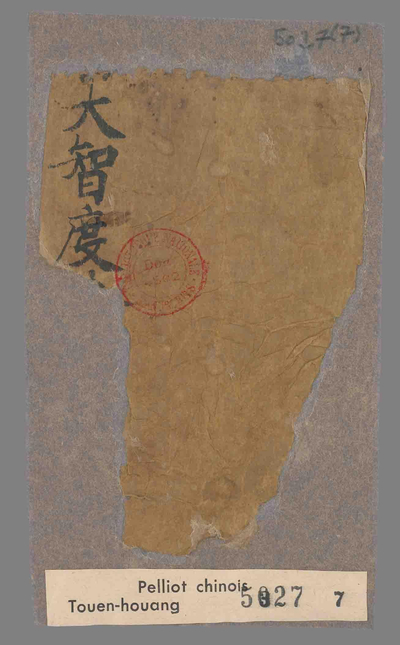 5027(7)
大智度
Don
4502
Pelliot chinois
Touen-houang
5027 7